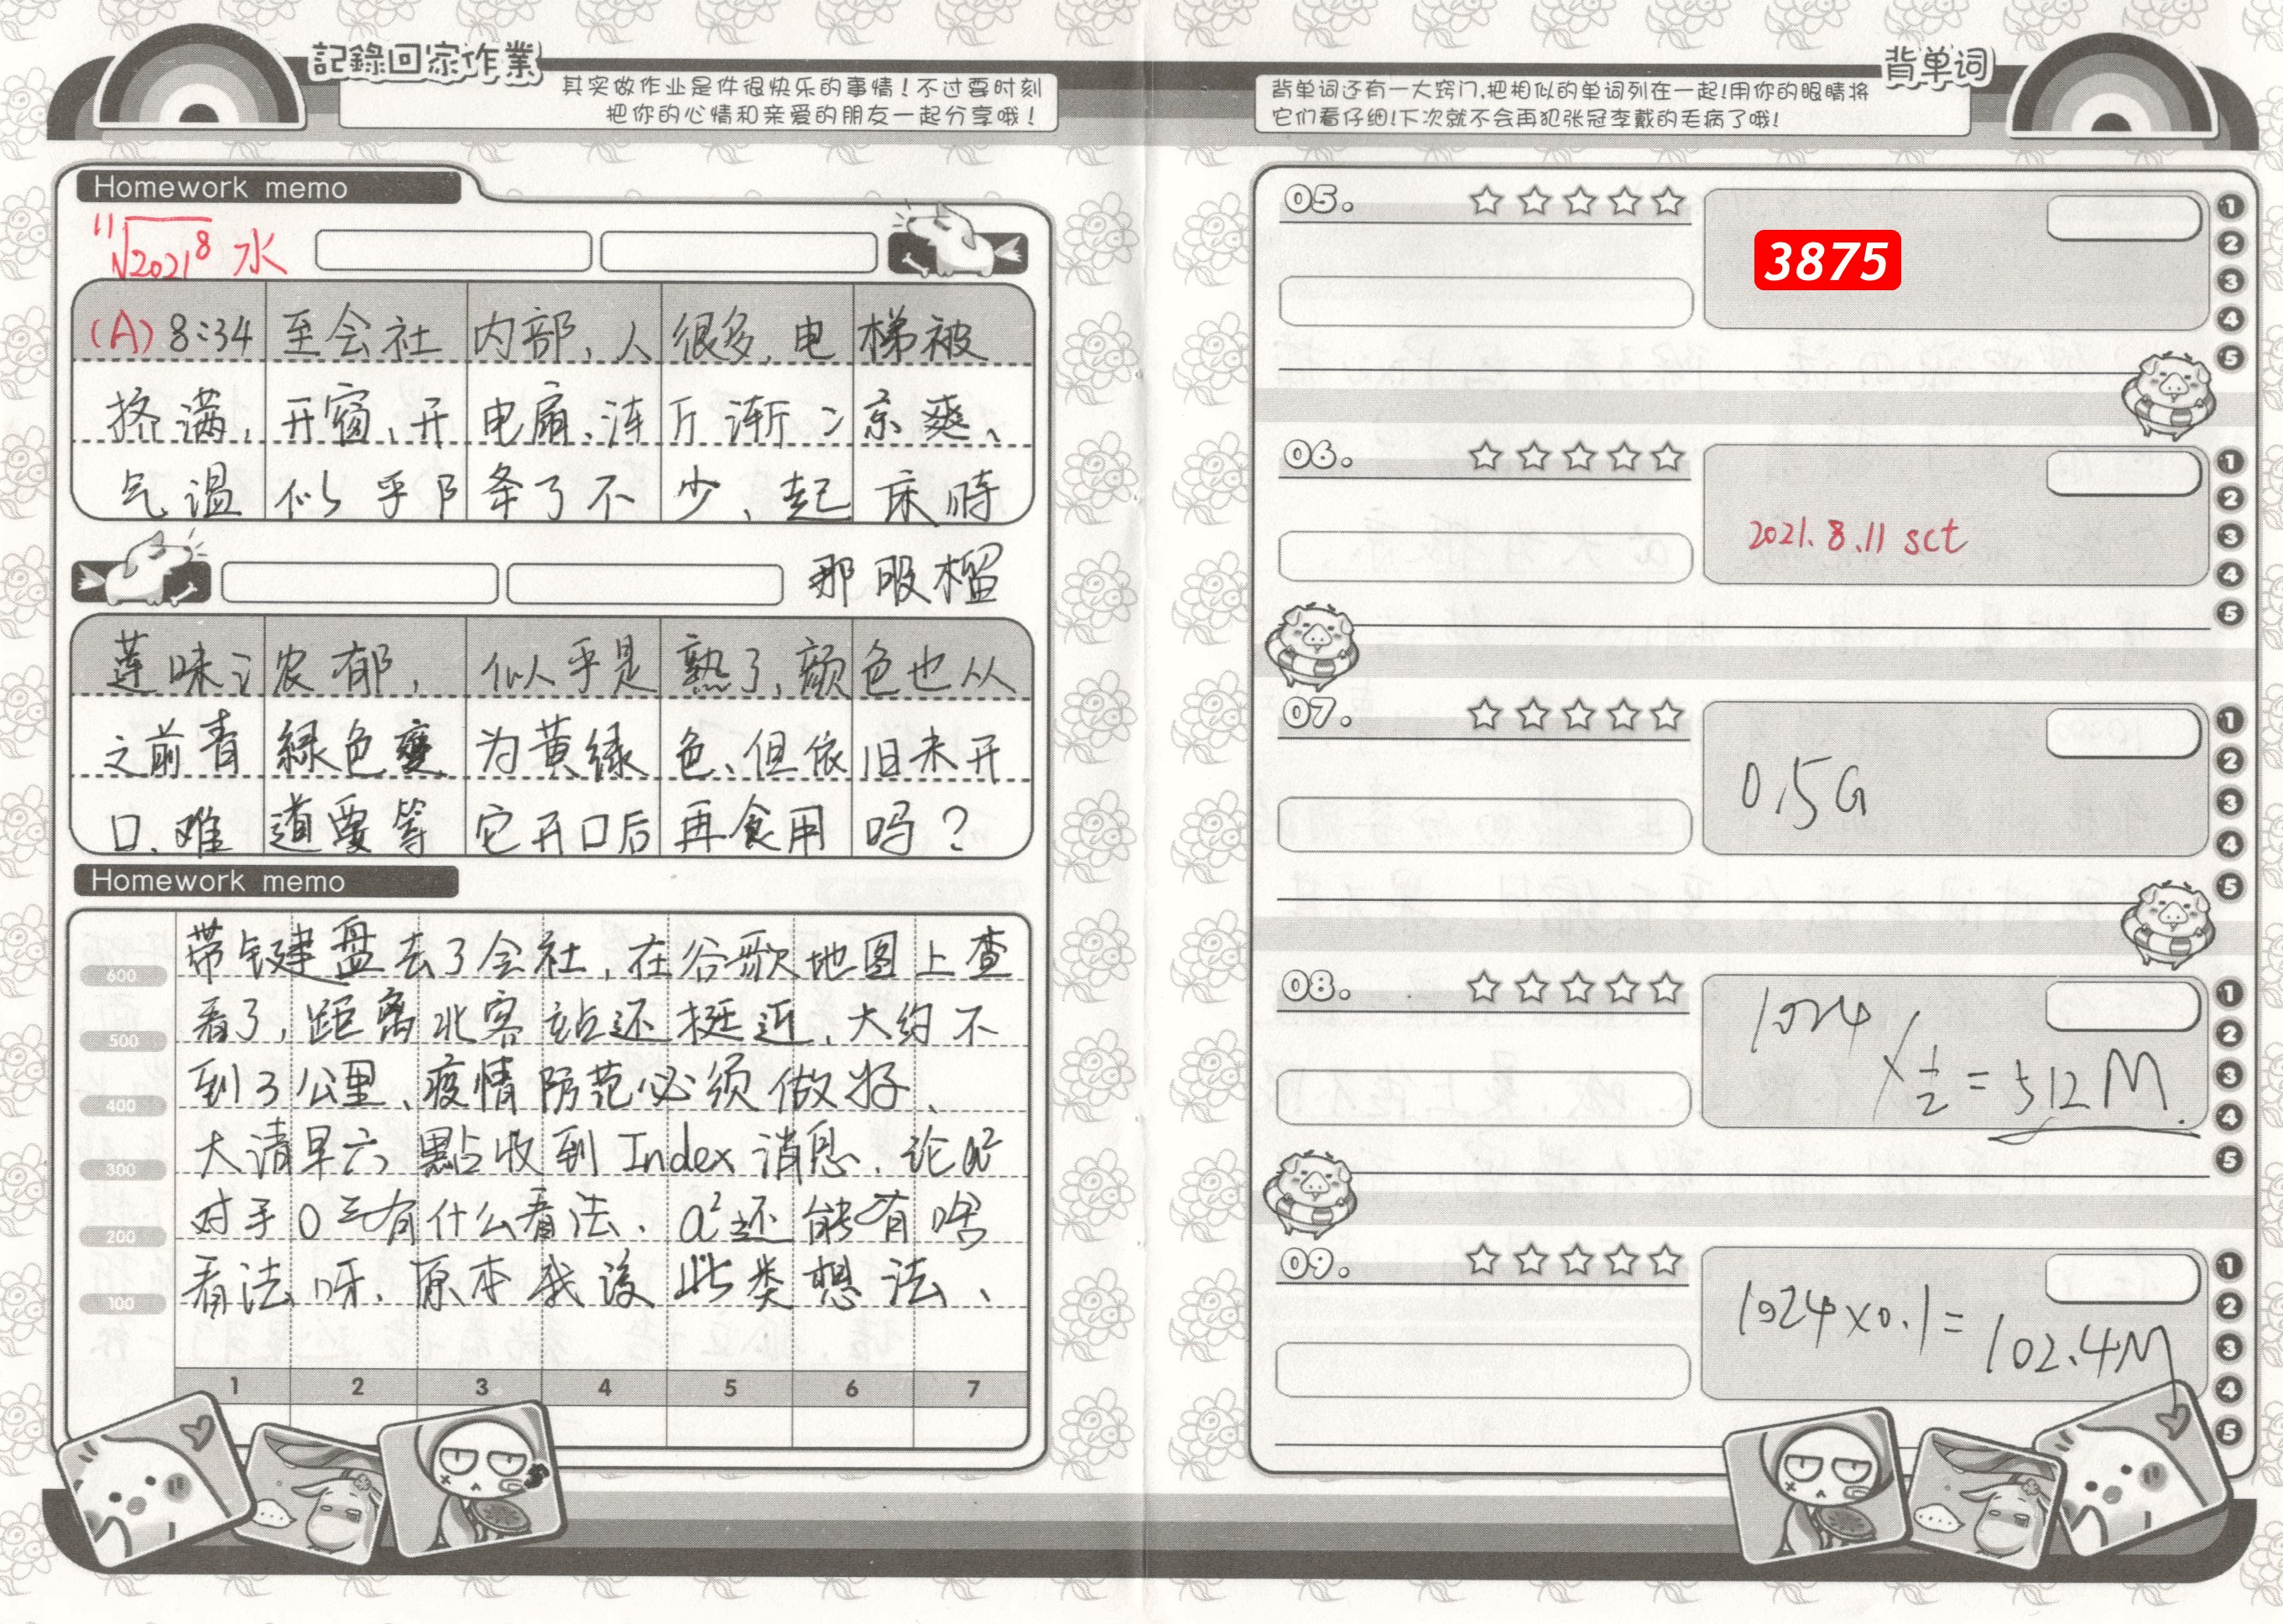 記錄回家作業
其实做作业是件很快乐的事情！不过要时刻
把你的心情和亲爱的朋友一起分享哦！
Homework memo
11√2021⁸ 水
(A) 8:34 至会社内部，人很多，电梯被
挤满，开窗、开电扇、渐渐凉爽、
气温似乎降了不少、起床時
那股榴
莲味浓郁，似乎是熟了，颜色也从
之前青緑色變为黄绿色、但依旧未开
口、难道要等它开口后再食用吗？
Homework memo
600
500
400
300
200
100
带键盘去了会社，在谷歌地图上查
看了，距离北客站还挺近，大约不
到3公里、疫情防范必须做好、
大清早六點收到Index消息、论a²
对手0三有什么看法、a²还能有啥
看法呀、原本我没此类想法、
1 2 3 4 5 6 7
背单词
背单词还有一大窍门，把相似的单词列在一起！用你的眼睛将
它们看仔细！下次就不会再犯张冠李戴的毛病了哦！
05.
3875
1
2
3
4
5
06.
2021.8.11 sct
1
2
3
4
5
07.
0.5G
1
2
3
4
5
08.
1024
×1/2=512M.
1
2
3
4
5
09.
1024×0.1=
102.4M
1
2
3
4
5